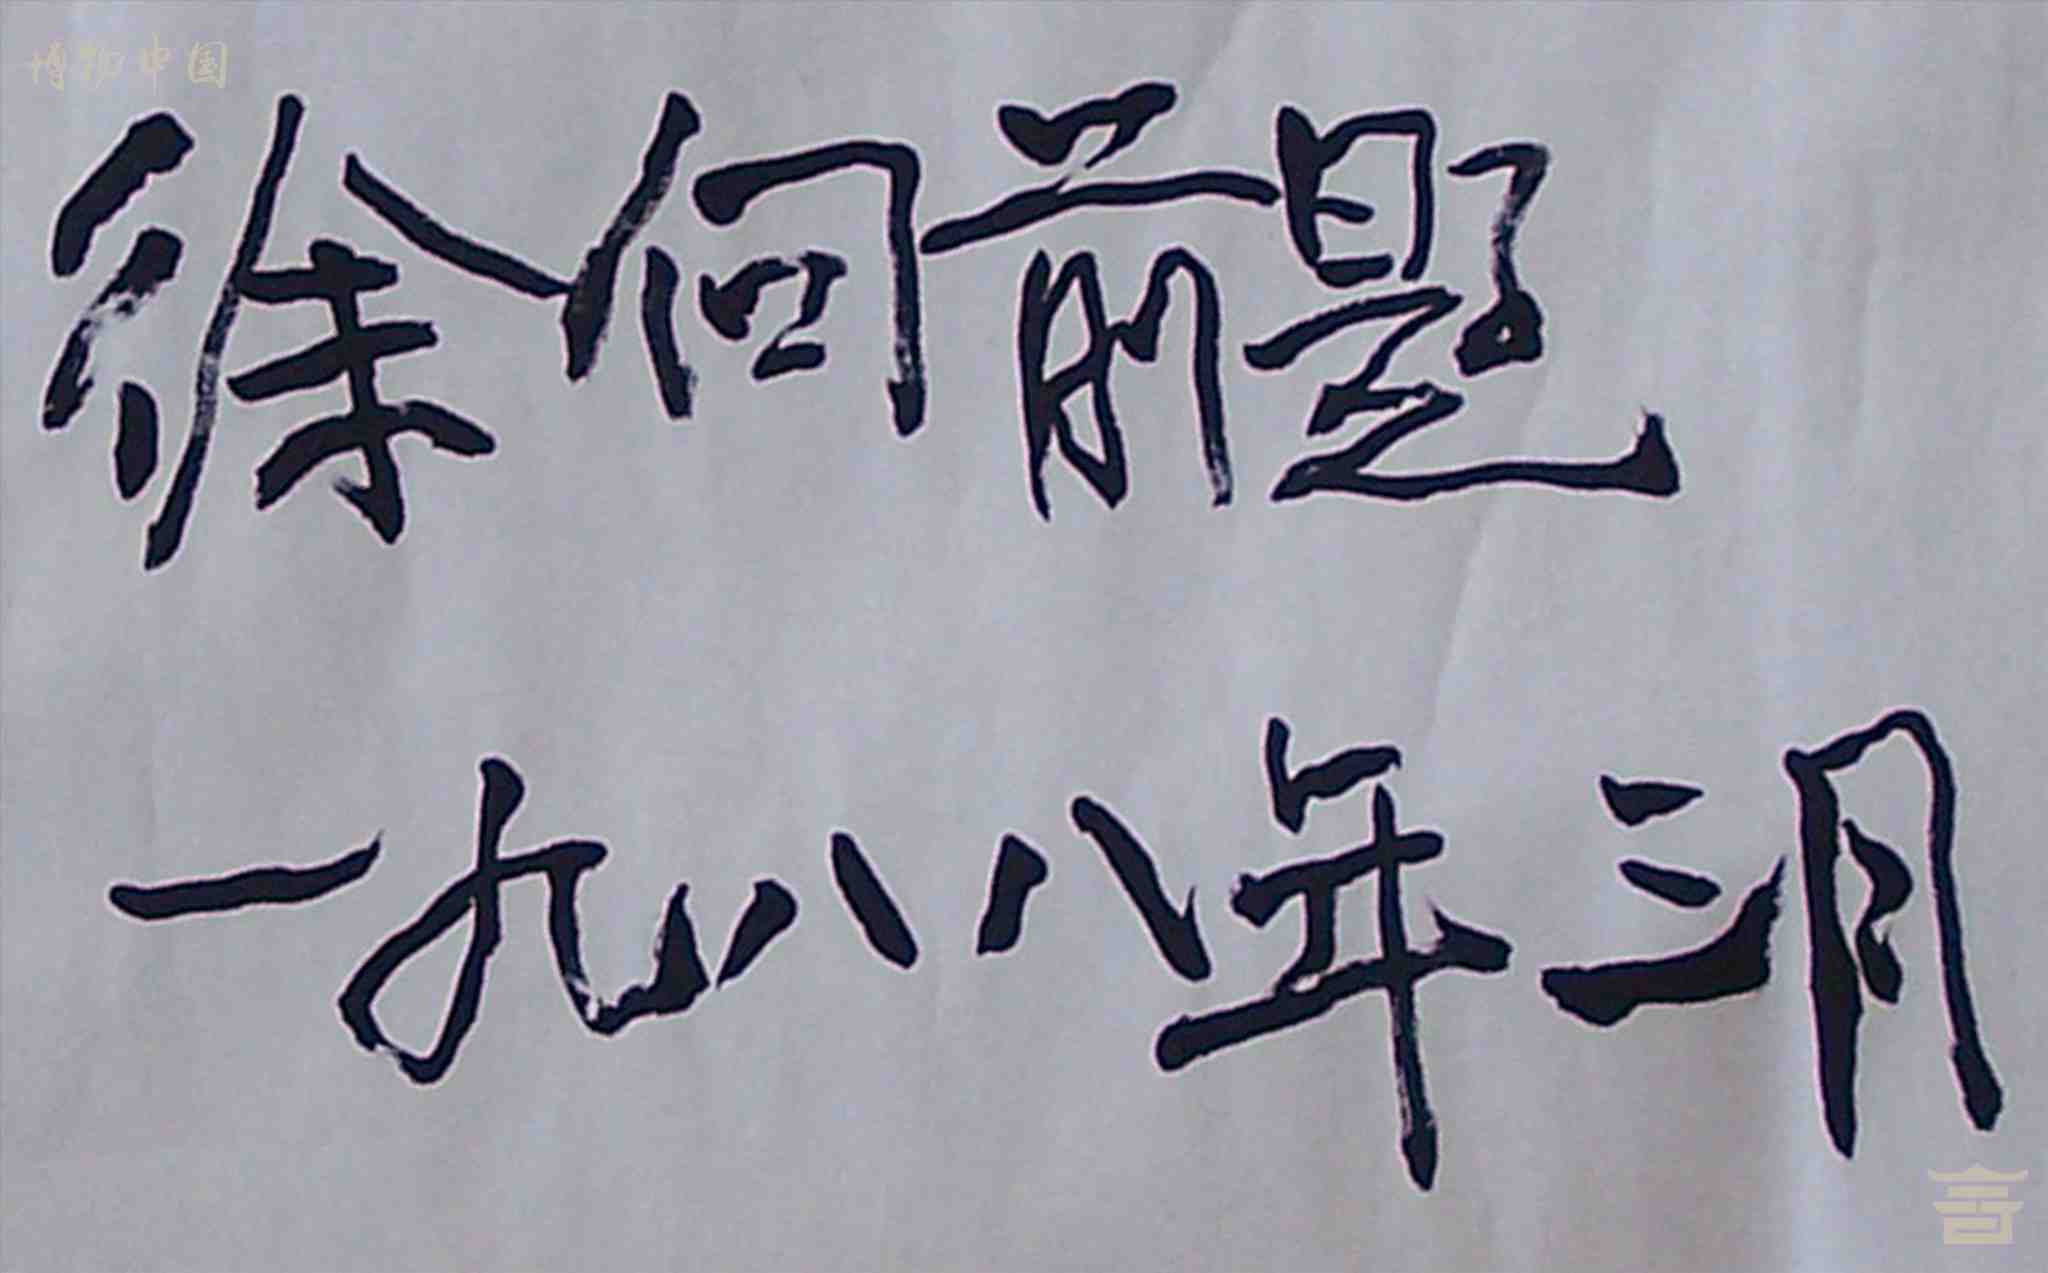 博物中国
徐向前题
一九八八年三月